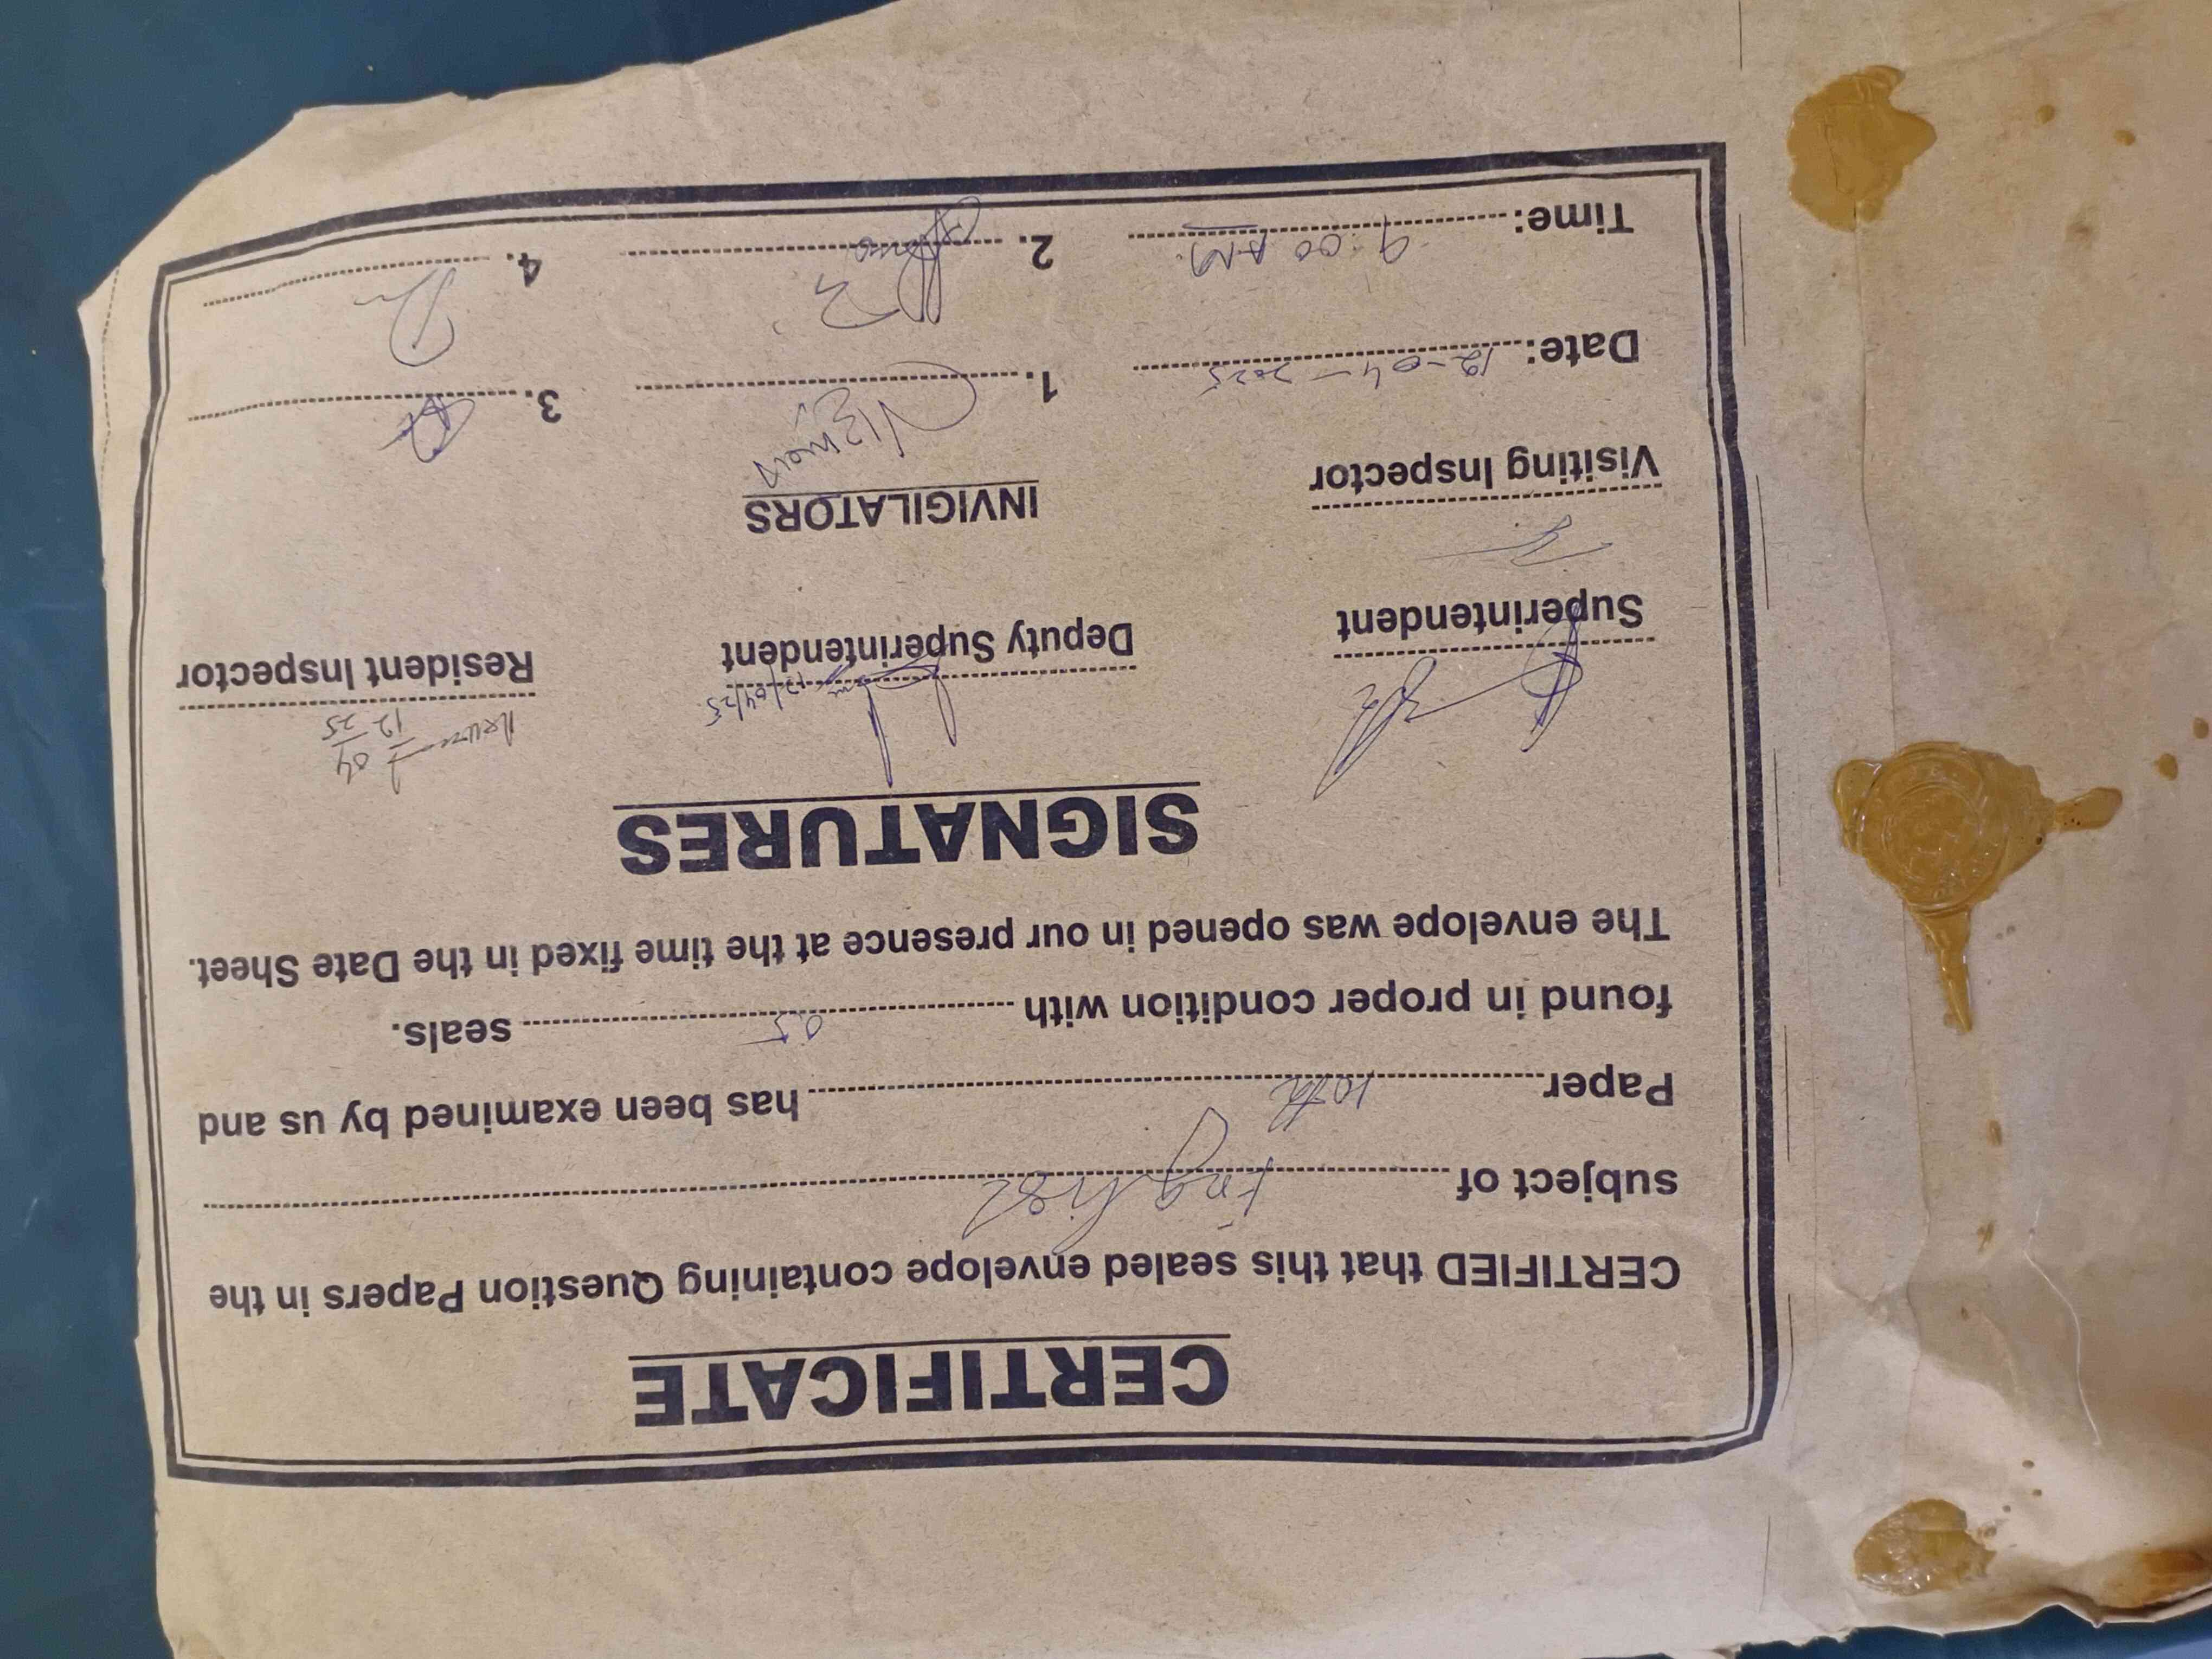 CERTIFICATE
CERTIFIED that this sealed envelope containing Question Papers in the
subject of English
Paper 10th has been examined by us and
found in proper condition with 05 seals.
The envelope was opened in our presence at the time fixed in the Date Sheet.
SIGNATURES
12/04/25
04
12
25
Superintendent
Deputy Superintendent
Resident Inspector
Visiting Inspector
INVIGILATORS
Date: 12-04-2025
1.
3.
Time: 9:00 A.M.
2.
4.